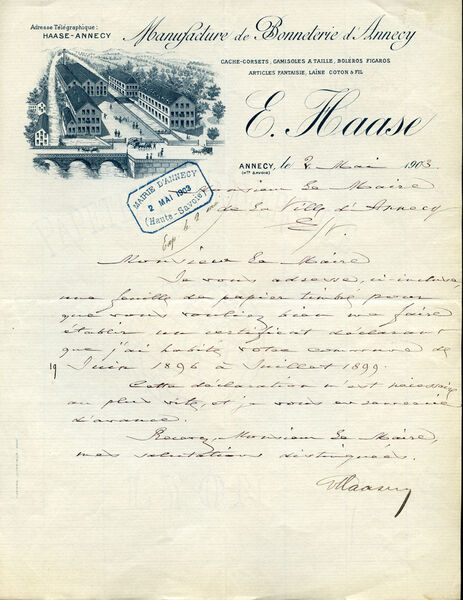 Adresse Télégraphique:
HAASE-ANNECY
Manufacture de Bonneterie d'Annecy
CACHE-CORSETS, CAMISOLES A TAILLE, BOLEROS FIGAROS
ARTICLES FANTAISIE, LAINE COTON & FIL
E. Haase
ANNECY, le 2 Mai 1903
(Hte SAVOIE)
MAIRIE D'ANNECY
2 MAI 1903
(Haute-Savoie)
Monsieur Le Maire
de la Ville d'Annecy
E/V.
Monsieur Le Maire
Je vous adresse, ci-incluse,
une feuille de papier timbré pour
que vous vouliez bien me faire
établir un certificat déclarant
que j'ai habité votre commune de
19 Juin 1896 à Juillet 1899.
Cette déclaration m'est nécessaire
au plus vite, et je vous en remercie
d'avance.
Recevez, Monsieur Le Maire,
mes salutations distinguées.